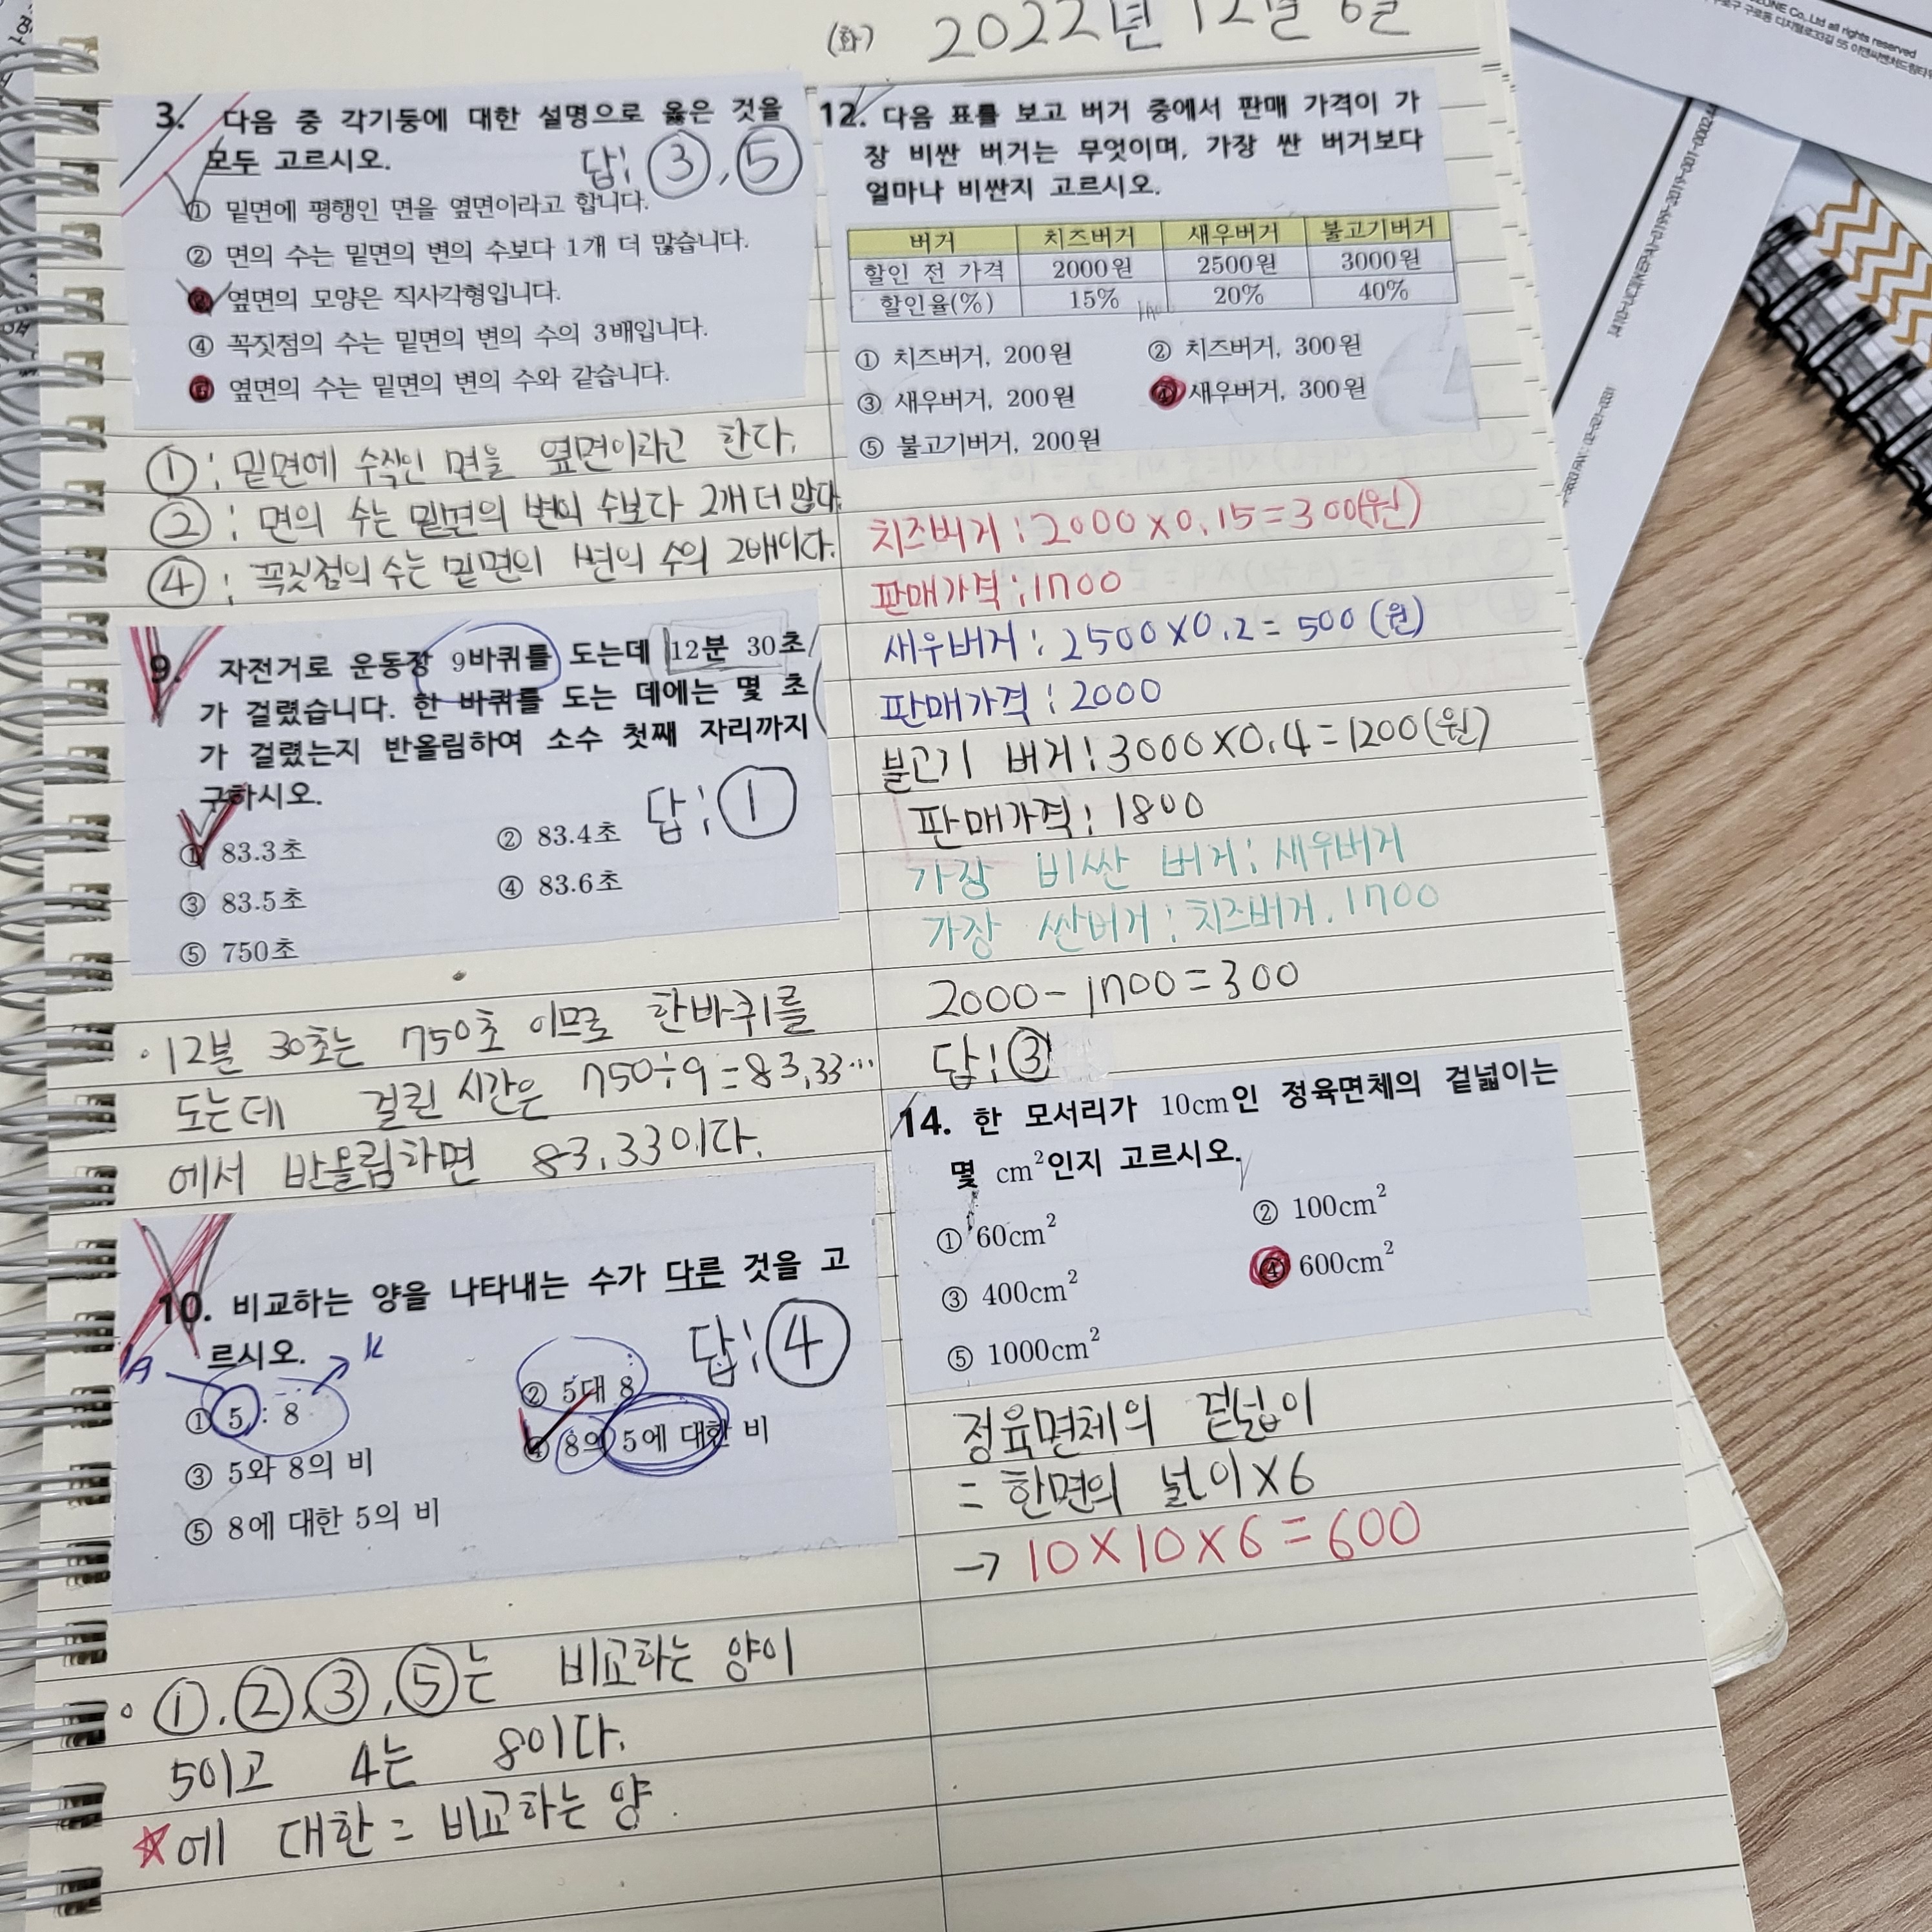 (화) 2022년 12월 6일
3. 다음 중 각기둥에 대한 설명으로 옳은 것을
모두 고르시오.
답: ③, ⑤
① 밑면에 평행인 면을 옆면이라고 합니다.
② 면의 수는 밑면의 변의 수보다 1개 더 많습니다.
③ 옆면의 모양은 직사각형입니다.
④ 꼭짓점의 수는 밑면의 변의 수의 3배입니다.
⑤ 옆면의 수는 밑면의 변의 수와 같습니다.
①: 밑면에 수직인 면을 옆면이라고 한다.
②: 면의 수는 밑면의 변의 수보다 2개 더 많다.
④: 꼭짓점의 수는 밑면의 변의 수의 2배이다.
9. 자전거로 운동장 9바퀴를 도는데 12분 30초
가 걸렸습니다. 한 바퀴를 도는 데에는 몇 초
가 걸렸는지 반올림하여 소수 첫째 자리까지
구하시오.
답: ①
① 83.3초
② 83.4초
③ 83.5초
④ 83.6초
⑤ 750초
· 12분 30초는 750초 이므로 한바퀴를
도는데 걸린 시간은 750÷9=83.33···
에서 반올림하면 83.33이다.
10. 비교하는 양을 나타내는 수가 다른 것을 고
르시오.
답: ④
① 5 : 8
② 5대 8
③ 5와 8의 비
④ 8의 5에 대한 비
⑤ 8에 대한 5의 비
∘ ①.②.③.⑤는 비교하는 양이
5이고 4는 8이다.
☆에 대한 = 비교하는 양.
12. 다음 표를 보고 버거 중에서 판매 가격이 가
장 비싼 버거는 무엇이며, 가장 싼 버거보다
얼마나 비싼지 고르시오.
버거 치즈버거 새우버거 불고기버거
할인 전 가격 2000원 2500원 3000원
할인율(%) 15% 20% 40%
① 치즈버거, 200원
② 치즈버거, 300원
③ 새우버거, 200원
④ 새우버거, 300원
⑤ 불고기버거, 200원
치즈버거 : 2000×0.15=300(원)
판매가격 : 1700
새우버거 : 2500×0.2=500(원)
판매가격 : 2000
불고기 버거 : 3000×0.4=1200(원)
판매가격 : 1800
가장 비싼 버거 : 새우버거
가장 싼버거 : 치즈버거. 1700
2000-1700=300
답: ③
14. 한 모서리가 10cm인 정육면체의 겉넓이는
몇 cm²인지 고르시오.
① 60cm²
② 100cm²
③ 400cm²
④ 600cm²
⑤ 1000cm²
정육면체의 겉넓이
= 한면의 넓이×6
→ 10×10×6=600